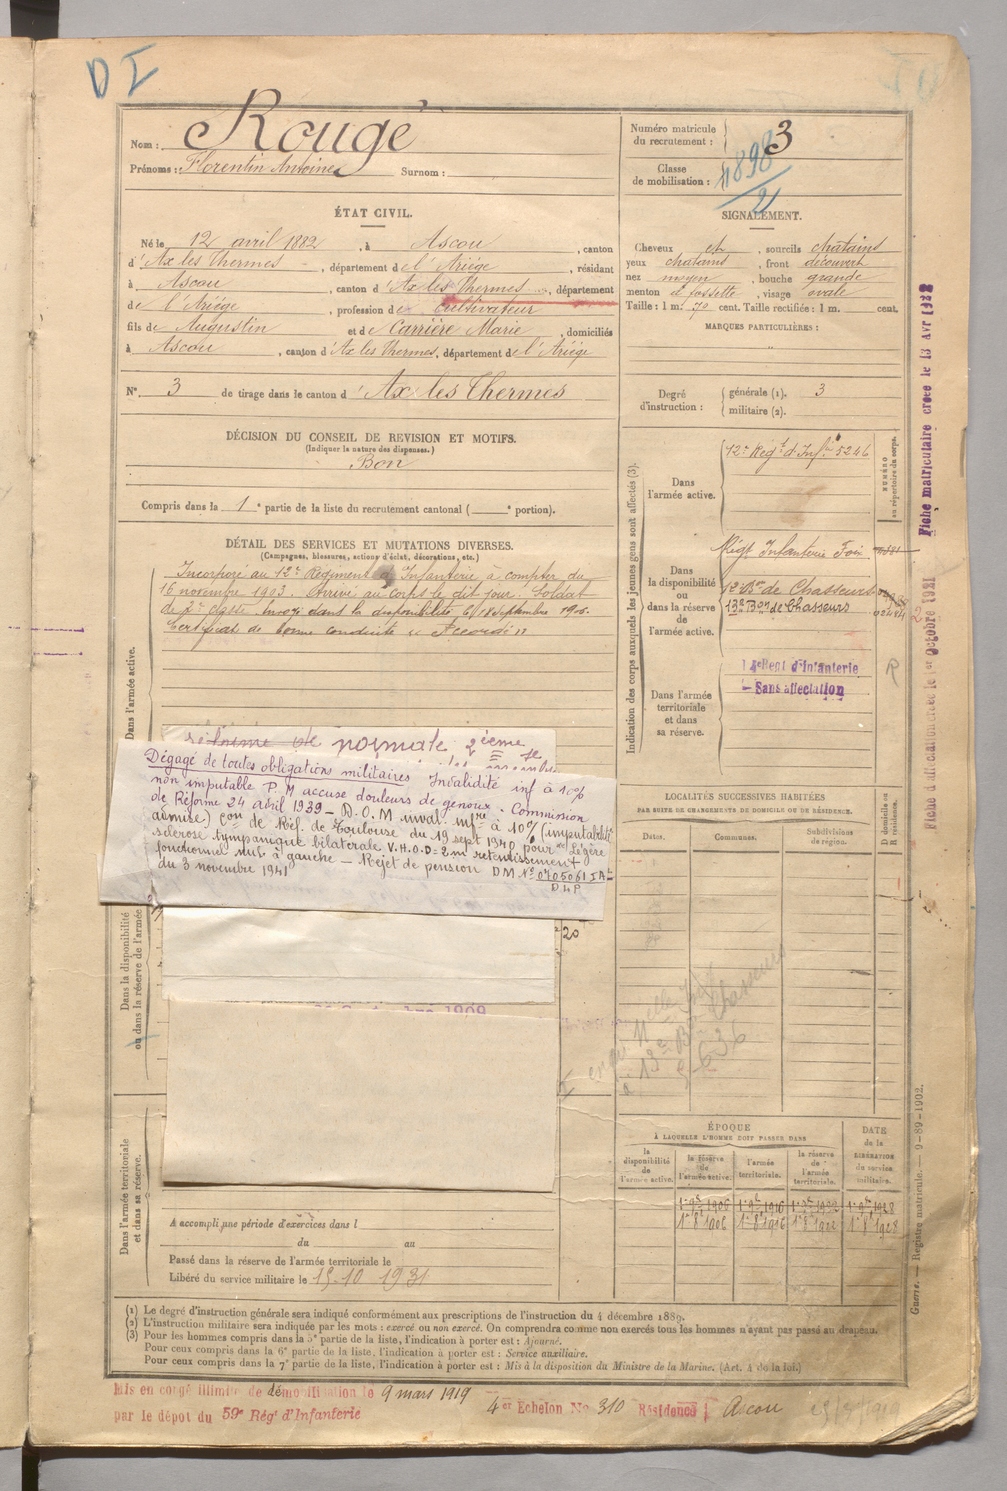 D I
Nom : Rougé
Prénoms : Florentin Antoine Surnom :
Numéro matricule du recrutement : 3
Classe de mobilisation : 1898/2
ÉTAT CIVIL.
Né le 12 avril 1882, à Ascou, canton
d'Ax les Thermes, département de l'Ariège, résidant
à Ascou, canton d'Ax les Thermes, département
de l'Ariège, profession de cultivateur
fils de Augustin et de Carrière Marie, domiciliés
à Ascou, canton d'Ax les Thermes, département de l'Ariège
N° 3 de tirage dans le canton d'Ax les Thermes
SIGNALEMENT.
Cheveux et, sourcils chatains
yeux chatains, front découvert
nez moyen, bouche grande
menton à fossette, visage ovale
Taille : 1 m. 70 cent. Taille rectifiée : 1 m. cent.
MARQUES PARTICULIÈRES :
"
Degré d'instruction : générale (1). 3
militaire (2).
DÉCISION DU CONSEIL DE REVISION ET MOTIFS.
(Indiquer la nature des dispenses.)
Bon
Compris dans la 1e partie de la liste du recrutement cantonal ( e portion).
DÉTAIL DES SERVICES ET MUTATIONS DIVERSES.
(Campagnes, blessures, actions d'éclat, décorations, etc.)
Dans l'armée active.
Incorporé au 12e Régiment d'Infanterie à compter du
16 novembre 1903. Arrivé au corps le dit jour. Soldat
de 2e classe. Envoyé dans la disponibilité le 18 septembre 1905.
Certificat de bonne conduite " Accordé "
normale 2ème
Dégagé de toutes obligations militaires Invalidité inf à 10%
non imputable P. M accuse douleurs de genoux. Commission
de Réforme 24 avril 1939 - D.O.M inval. infre à 10% (imputabilité
admise) Con de Réf. de Toulouse du 19 sept 1940 pour "de légère
sclérose tympanique bilatérale V.H.O.D = 2m retentissement
fonctionnel nul à gauche - Rejet de pension DM N° 0705061 I At
du 3 novembre 1941 D 4 P
20
1909
Dans la disponibilité
ou dans la réserve de l'armée
Dans l'armée territoriale
et dans sa réserve.
A accompli une période d'exercices dans l
du au
Passé dans la réserve de l'armée territoriale le
Libéré du service militaire le 15-10 1931
Indication des corps auxquels les jeunes gens sont affectés (3).
NUMÉRO
au répertoire du corps.
Dans
l'armée active.
12e Regt d'Infie 5246
Dans
la disponibilité
ou
dans la réserve
de
l'armée active.
Régt Infanterie Foix
12e Bon de Chasseurs
13e Bon de Chasseurs
Dans l'armée
territoriale
et dans
sa réserve.
14e Regt d'Infanterie
- Sans affectation
R
LOCALITÉS SUCCESSIVES HABITÉES
PAR SUITE DE CHANGEMENTS DE DOMICILE OU DE RÉSIDENCE.
Dates. Communes. Subdivisions de région. D domicile ou R résidence.
à 13e Bon Chasseurs
5-6-36
ÉPOQUE
À LAQUELLE L'HOMME DOIT PASSER DANS
DATE
de la
LIBÉRATION
du service
militaire.
la disponibilité de l'armée active.
la réserve de l'armée active.
l'armée territoriale.
la réserve de l'armée territoriale.
1er 9e 1906 1er 9e 1916 1er 9e 1922 1er 9e 1928
1er 8e 1906 1er 8e 1916 1er 8e 1922 1er 8e 1928
(1) Le degré d'instruction générale sera indiqué conformément aux prescriptions de l'instruction du 4 décembre 1889.
(2) L'instruction militaire sera indiquée par les mots : exercé ou non exercé. On comprendra comme non exercés tous les hommes n'ayant pas passé au drapeau.
(3) Pour les hommes compris dans la 5e partie de la liste, l'indication à porter est : Ajourné.
Pour ceux compris dans la 6e partie de la liste, l'indication à porter est : Service auxiliaire.
Pour ceux compris dans la 7e partie de la liste, l'indication à porter est : Mis à la disposition du Ministre de la Marine. (Art. 4 de la loi.)
Mis en congé illimité de démobilisation le 9 mars 1919
par le dépot du 59e Régt d'Infanterie
4er Echelon No 310 Résidence : Ascou
Guerre. — Registre matricule. — 9-89-1902.
Fiche matriculaire créée le 13 Avr 1922
Fiche d'affectation créée le 1er Octobre 1921